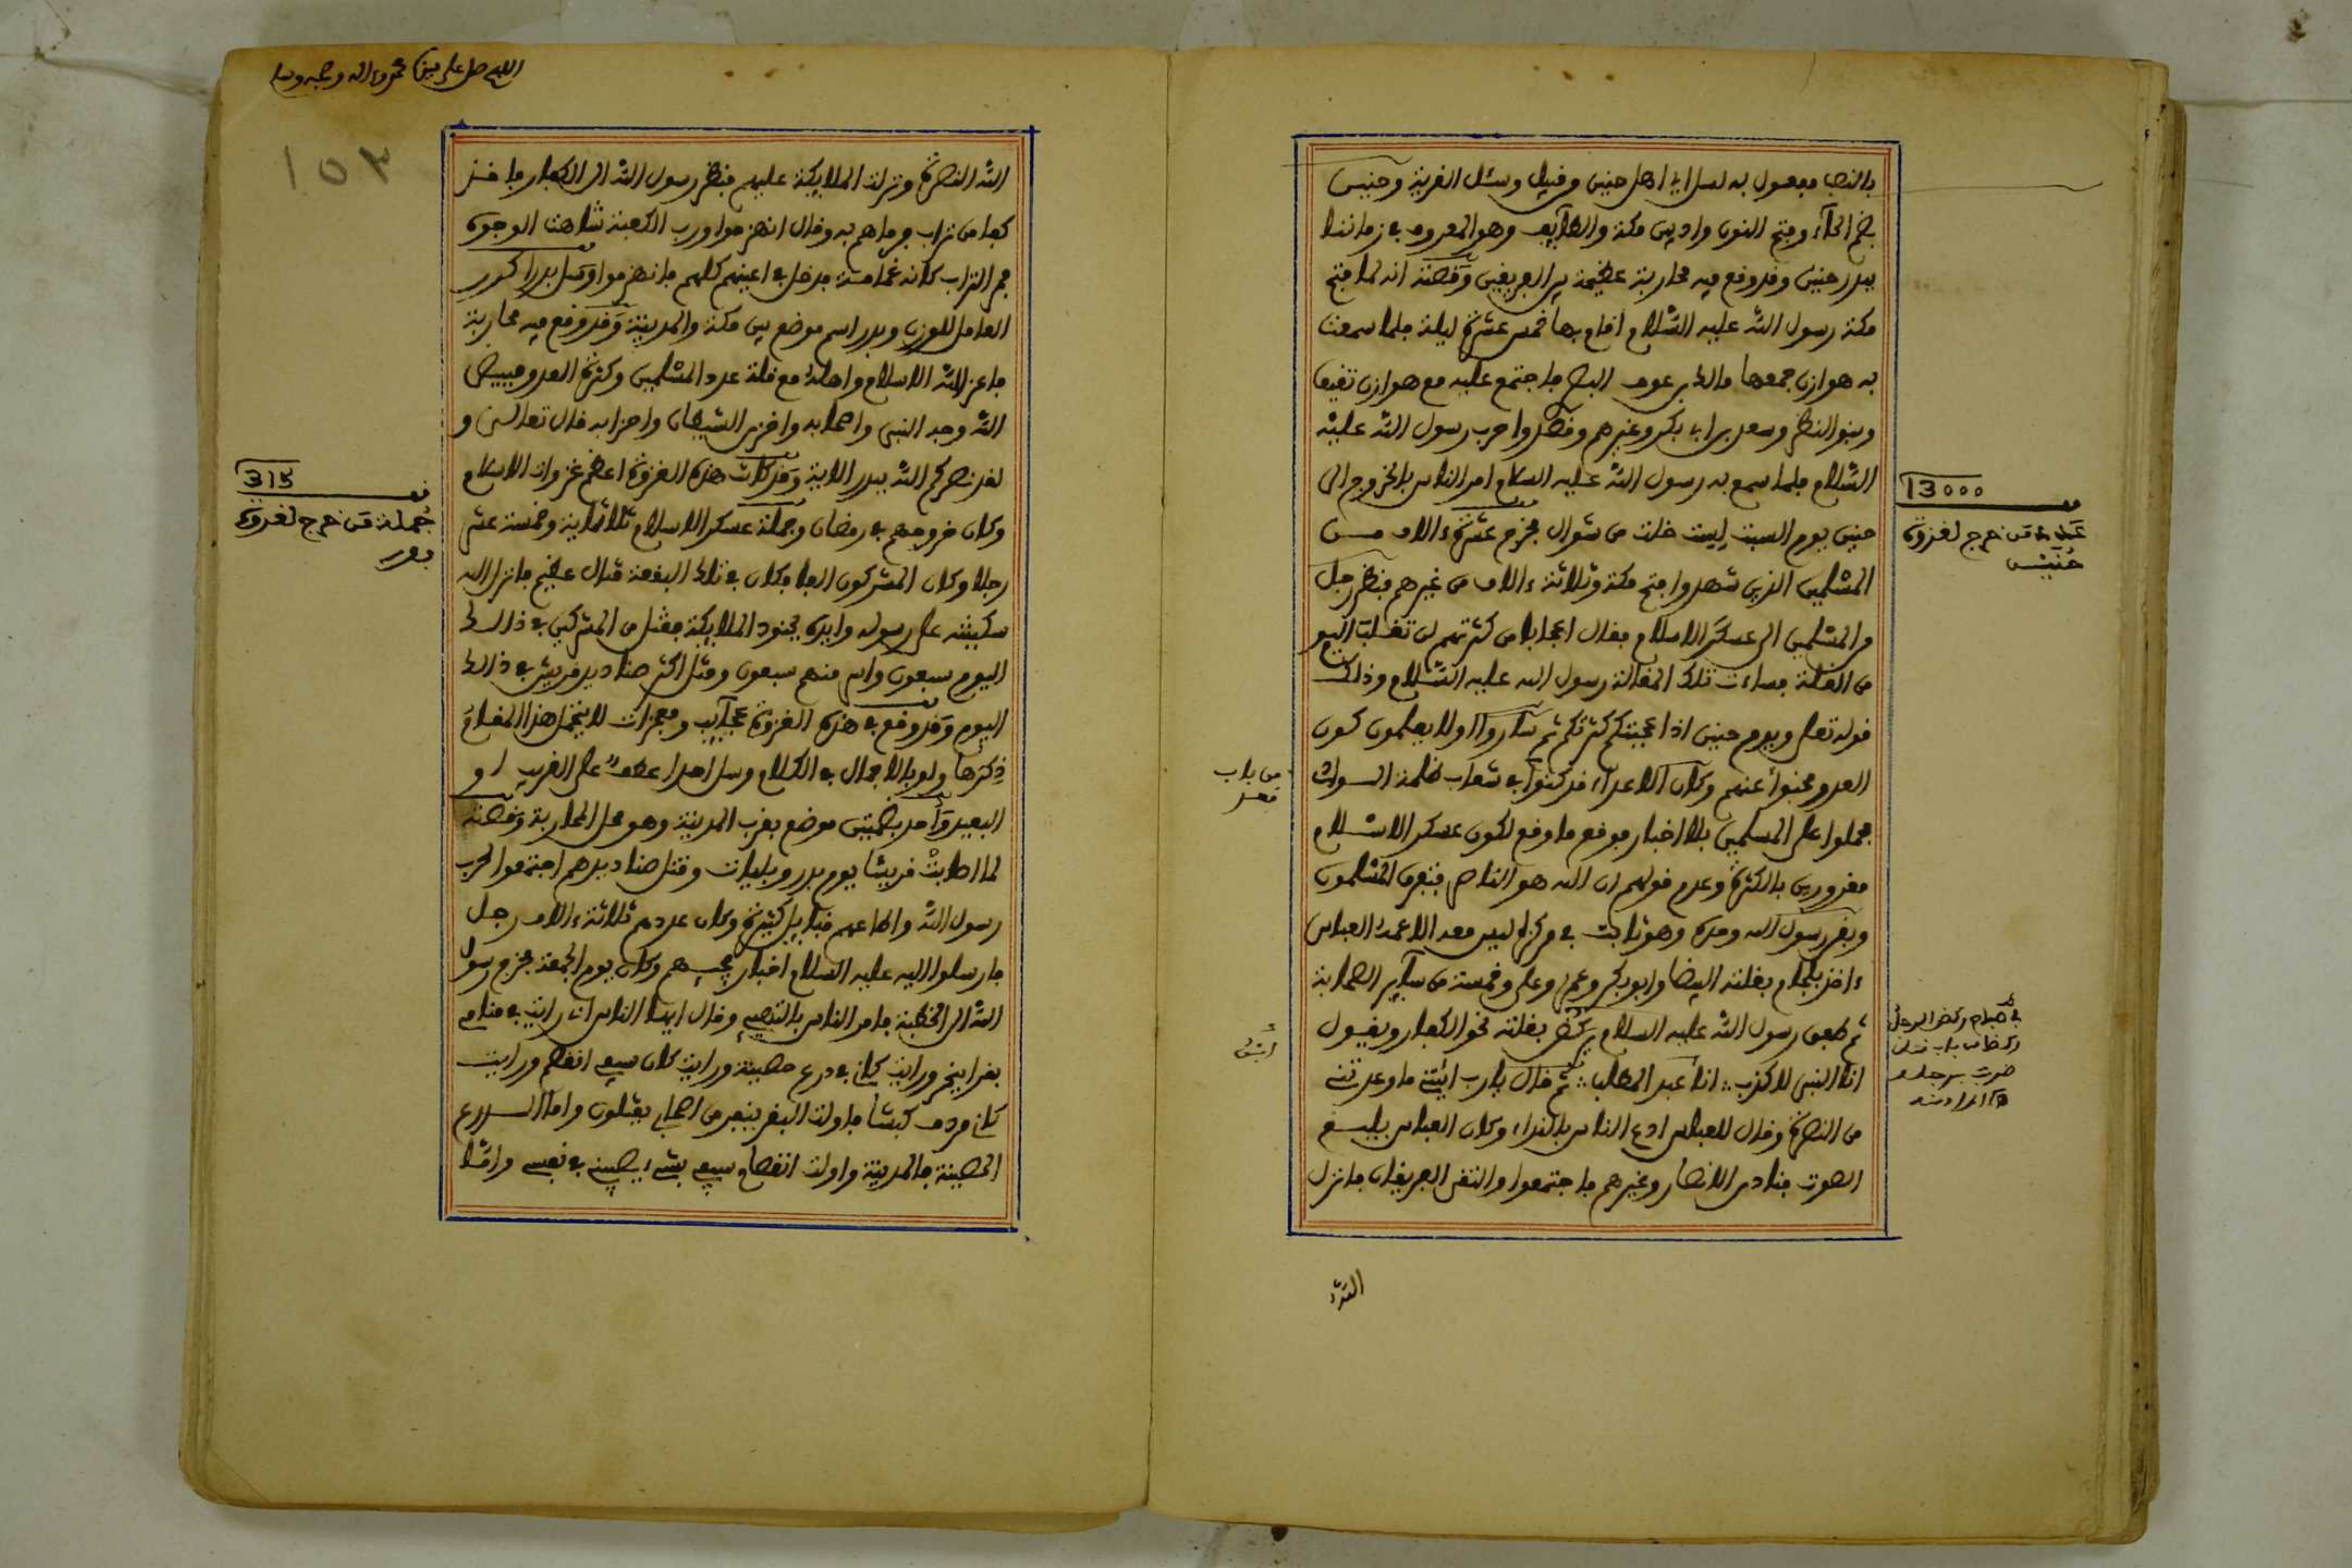 بالنصب مفعول به لسل اي اهل حنين وقيل وسئل القرية وحنين
بضم الحآء وفتح النون واد بين مكة والطآئف وهو المعروف في زماننا
ببدر حنين وقد وقع فيه محاربة عظيمة بين الفريقين وقصته انه لما فتح
مكة رسول الله عليه السّلام اقام بها خمس عشرة ليلة فلما سمعت
به هوازن جمعها مالك بن عوف فاجتمع عليه مع هوازن ثقيف
وبنو النضر وسعد بن ابي بكر وغيرهم وقصدوا حرب رسول الله عليه
السّلام فلما سمع به رسول الله عليه السلام امر الناس بالخروج الى
حنين يوم السبت لست خلت من شوال فخرج عشرة ءالاف من
المسلمين الذين شهدوا فتح مكة وثلاثة ءالاف من غيرهم فنظر رجل
من المسلمين الى عسكر الاسلام فقال اعجابا من كثرتهم لن تغلب اليوم
من القلة فساءت تلك المقالة رسول الله عليه السّلام وذلك
قوله تعلى ويوم حنين اذ اعجبتكم كثرتكم ثم ساروا اولا يعلمون كون
العدو مختبوأ عنهم وكان الاعداء قد كمنوا في شعاب لظلمة السواد
فحملوا على المسلمين بلا اخبار فوقع ما وقع لكون عسكر الاسلام
مغرورين بالكثرة وعدم قولهم ان الله هو الناصر فتفرق المسلمون
وبقى رسول الله وحده وهو ثابت في مركزه ليس معه الا عمه العباس
ءاخذ بلجام بغلته البيضا وابو بكر وعمر وعلى وخمسة من سآئر الصحابة
ثم طفق رسول الله عليه السلام يركض بغلته نحو الكفار ويقول
انا النبى لا كذب ∴ انا عبد المطلب ∴ ثم قال يارب ائتني ما وعدتني
من النصرة وقال للعباس ادع الناس بالنداء وكان العباس بليغ
الصوت فنادى الانصار وغيرهم فاجتمعوا والتقى الفريقان فانزل
13000
عدة من خرج لغزوة
حنين
من باب
ركض الرجل
من باب
ضرب برجله
المراد منه
الله النصرة ونزلت الملايكة عليهم فنظر رسول الله الى الكفار فاخذ
كفا من تراب فرماهم به وقال انهزموا ورب الكعبة شاهت الوجوه
التراب كانه غمامة فدخل في اعينهم كلهم فانهزموا وسل بدرا كرر
العامل للوزن وبدر اسم موضع بين مكة والمدينة وقد وقع فيه محاربة
فاعز الله الاسلام واهله مع قلة عدد المسلمين وكثرة العدو فبيض
الله وجه النبي واصحابه واخزى الشيطان واحزابه قال تعالى و
لقد نصركم الله ببدر الاية وقد كانت هذه الغزوة اعظم غزوات الاسلام
وكان خروجهم في رمضان وجملة عسكر الاسلام ثلاثماية وخمسة عشر
رجلا وكان المشركون الفا فكان في تلك البقعة قتال عظيم فانزل الله
سكينته على رسوله وايده بجنود الملايكة فقتل من المشركين في ذلك
اليوم سبعون واسر منهم سبعون وقتل اكثر صناديد قريش في ذلك
اليوم وقد وقع في هذه الغزوة عجآئب ومعجزات لا يتحمل هذا المقام
ذكرها ولو بالاجمال في الكلام وسل احدا عطف على القريب او
البعيد واحد بضمتين موضع بقرب المدينة وهو محل المحاربة وقصته
لما اصابت قريشا يوم بدر وبليات وقتل صناديدهم اجتمعوا لحرب
رسول الله واطاعهم قبايل كثيرة وكان عددهم ثلاثة ءالاف رجل
فارسلوا اليه عليه السلام اخبار وكان يوم الجمعة فخرج رسول
الله الى الخطبة فامر الناس وقال ايها الناس انى رايت في منامي
بقرا ينحر ورايت كاني في درع حصينة ورايت كان سيفي انفصم ورايت
كاني مردف كبشا فاولت البقر بنفر من اصحابي يقتلون واما الدرع
الحصينة فالمدينة واولت انفصام سيفي بشيء يصيبني في نفسي واما
315
جملة من خرج لغزوة
بدر
١٥٣